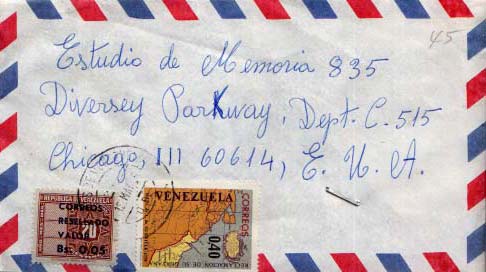 45
Estudio de Memoria 835
Diversey Parkway, Dept. C. 515
Chicago, Ill 60614, E. U. A.
REPUBLICA DE VENEZUELA
CORREOS
RESELLADO
VALOR
Bs. 0,05
20
VENEZUELA
CORREOS
0,40
RECLAMACION DE SU GUAYANA